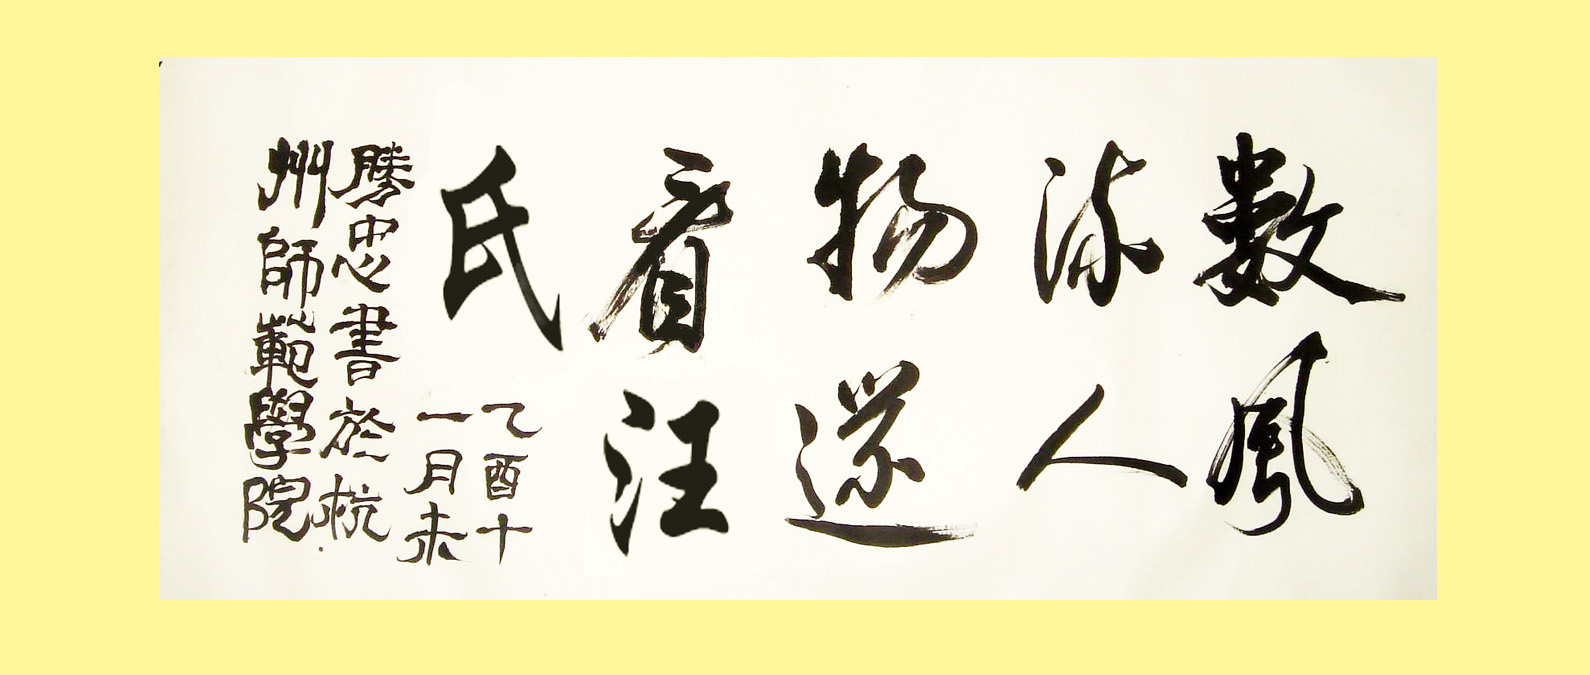 數風
流人
物還
看汪
氏
乙酉十
一月末
勝忠書於杭
州師範學院